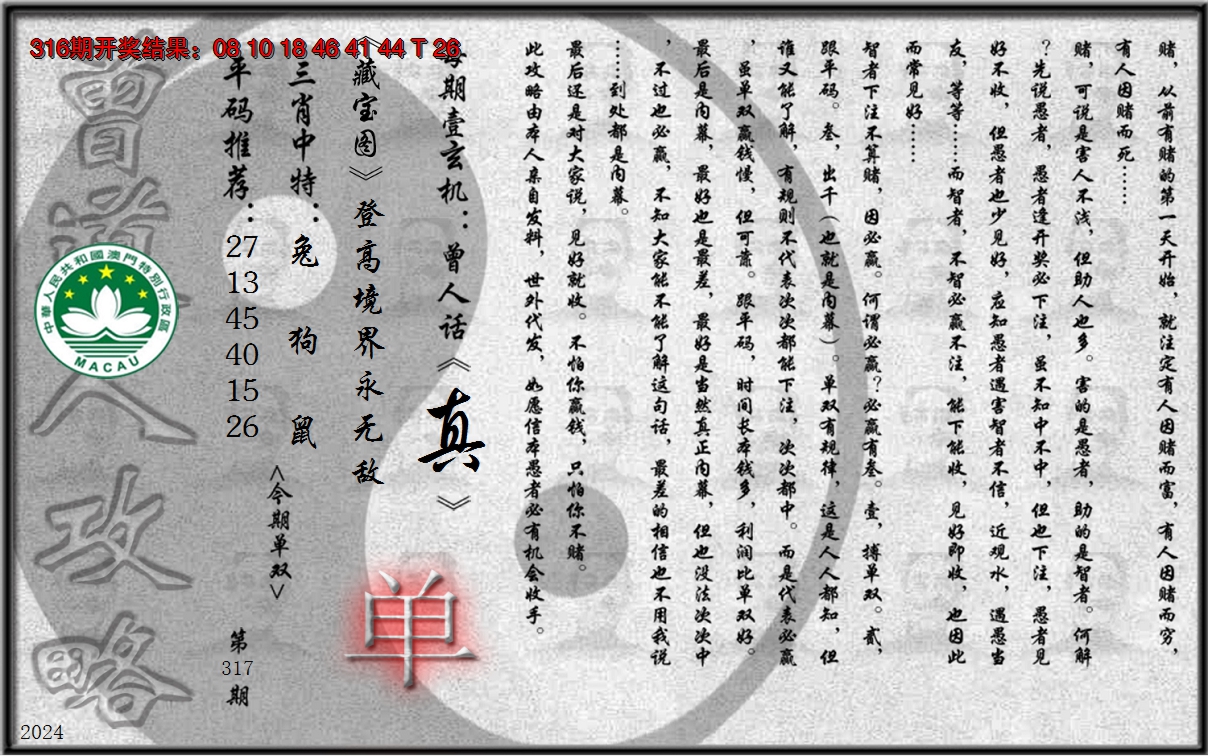 316期开奖结果：08 10 18 46 41 44 T 26
赌，从前有赌的第一天开始，就注定有人因赌而富，有人因赌而穷，
有人因赌而死……
赌，可说是害人不浅，但助人也多。害的是愚者，助的是智者。何解
？先说愚者，愚者逢开奖必下注，虽不知中不中，但也下注，愚者见
好不收，但愚者也少见好，应知愚者遇害智者不信，近观水，遇愚当
友，等等……而智者，不智必赢不注，能下能收，见好即收，也因此
而常见好……
智者下注不算赌，因必赢。何谓必赢？必赢有叁。壹，搏单双。贰，
跟平码。叁，出千（也就是内幕）。单双有规律，这是人人都知，但
谁又能了解，有规则不代表次次都能下注，次次都中。而是代表必赢
，虽单双赢钱慢，但可靠。跟平码，时间长本钱多，利润比单双好。
最后是内幕，最好也是最差，最好是当然真正内幕，但也没法次次中
，不过也必赢，不知大家能不能了解这句话，最差的相信也不用我说
……到处都是内幕。
最后还是对大家说，见好就收。不怕你赢钱，只怕你不赌。
此攻略由本人亲自发料，世外代发，如愿信本愚者必有机会收手。
每期壹玄机：曾人话《真》
《藏宝图》登高境界永无敌
单
三肖中特：兔 狗 鼠
<今期单双>
平码推荐：
27
13
45
40
15
26
第
317
期
曾道人攻略
中華人民共和國澳門特別行政區
MACAU
2024